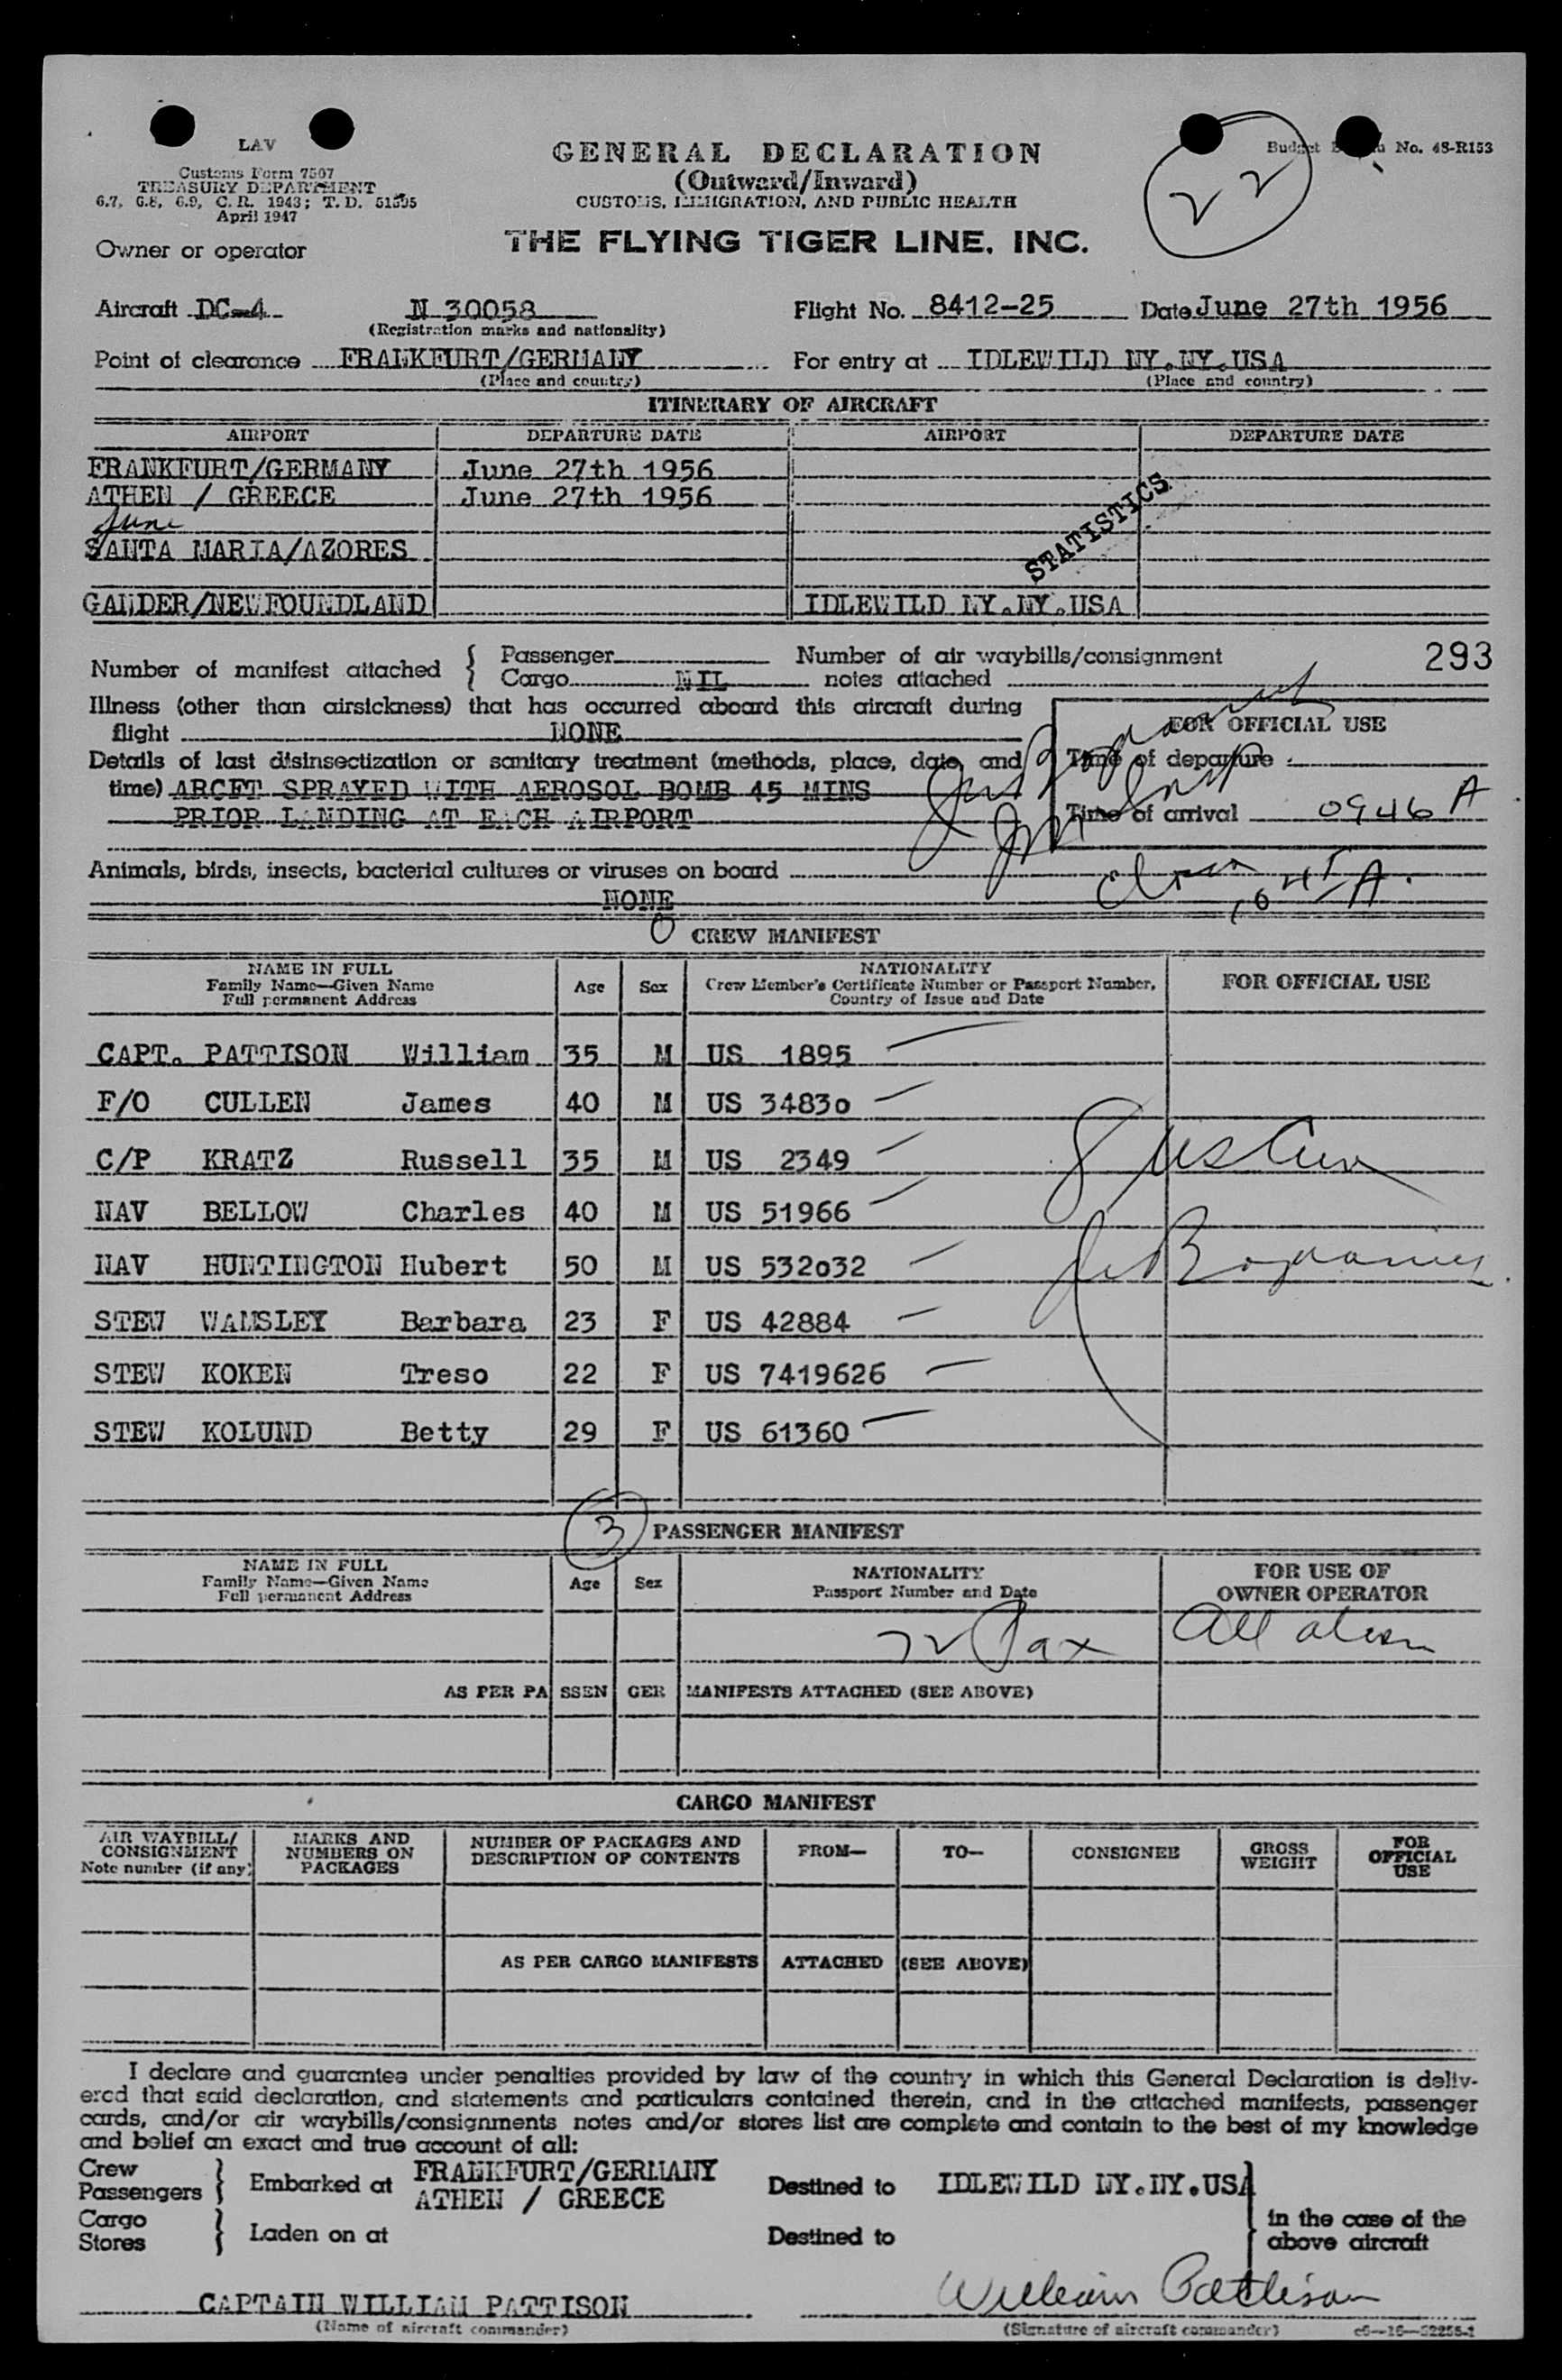 LAV
Customs Form 7507
TREASURY DEPARTMENT
6.7, 6.8, 6.9, C. R. 1943; T. D. 51595
April 1947
GENERAL DECLARATION
(Outward/Inward)
CUSTOMS, IMMIGRATION, AND PUBLIC HEALTH
Budget No. 48-R153
22
Owner or operator
THE FLYING TIGER LINE, INC.
Aircraft DC-4 N 30058 Flight No. 8412-25 Date June 27th 1956
(Registration marks and nationality)
Point of clearance FRANKFURT/GERMANY For entry at IDLEWILD NY.NY.USA
(Place and country) (Place and country)
ITINERARY OF AIRCRAFT
AIRPORT DEPARTURE DATE AIRPORT DEPARTURE DATE
FRANKFURT/GERMANY June 27th 1956
ATHEN / GREECE June 27th 1956
STATISTICS
June
SANTA MARIA/AZORES
GANDER/NEWFOUNDLAND IDLEWILD NY.NY.USA
Number of manifest attached { Passenger
Cargo NIL
Number of air waybills/consignment
notes attached
293
Illness (other than airsickness) that has occurred aboard this aircraft during
flight NONE
FOR OFFICIAL USE
Details of last disinsectization or sanitary treatment (methods, place, date, and
time) ARCFT SPRAYED WITH AEROSOL BOMB 45 MINS
PRIOR LANDING AT EACH AIRPORT
Time of departure
Time of arrival 0946 A
Animals, birds, insects, bacterial cultures or viruses on board
NONE
1045 A.
CREW MANIFEST
NAME IN FULL
Family Name—Given Name
Full permanent Address
Age
Sex
NATIONALITY
Crew Member's Certificate Number or Passport Number,
Country of Issue and Date
FOR OFFICIAL USE
CAPT. PATTISON William 35 M US 1895
F/O CULLEN James 40 M US 34830
C/P KRATZ Russell 35 M US 2349
NAV BELLOW Charles 40 M US 51966
NAV HUNTINGTON Hubert 50 M US 532032
STEW WAMSLEY Barbara 23 F US 42884
STEW KOKEN Treso 22 F US 7419626
STEW KOLUND Betty 29 F US 61360
3
PASSENGER MANIFEST
NAME IN FULL
Family Name—Given Name
Full permanent Address
Age
Sex
NATIONALITY
Passport Number and Date
FOR USE OF
OWNER OPERATOR
72 Pax All
AS PER PASSENGER MANIFESTS ATTACHED (SEE ABOVE)
CARGO MANIFEST
AIR WAYBILL/
CONSIGNMENT
Note number (if any)
MARKS AND
NUMBERS ON
PACKAGES
NUMBER OF PACKAGES AND
DESCRIPTION OF CONTENTS
FROM—
TO—
CONSIGNEE
GROSS
WEIGHT
FOR
OFFICIAL
USE
AS PER CARGO MANIFESTS ATTACHED (SEE ABOVE)
I declare and guarantee under penalties provided by law of the country in which this General Declaration is deliv-
ered that said declaration, and statements and particulars contained therein, and in the attached manifests, passenger
cards, and/or air waybills/consignments notes and/or stores list are complete and contain to the best of my knowledge
and belief an exact and true account of all:
Crew
Passengers } Embarked at FRANKFURT/GERMANY
ATHEN / GREECE
Destined to IDLEWILD NY.NY.USA
Cargo
Stores } Laden on at Destined to
in the case of the
above aircraft
CAPTAIN WILLIAM PATTISON William Pattison
(Name of aircraft commander) (Signature of aircraft commander) c6—16—52255-1